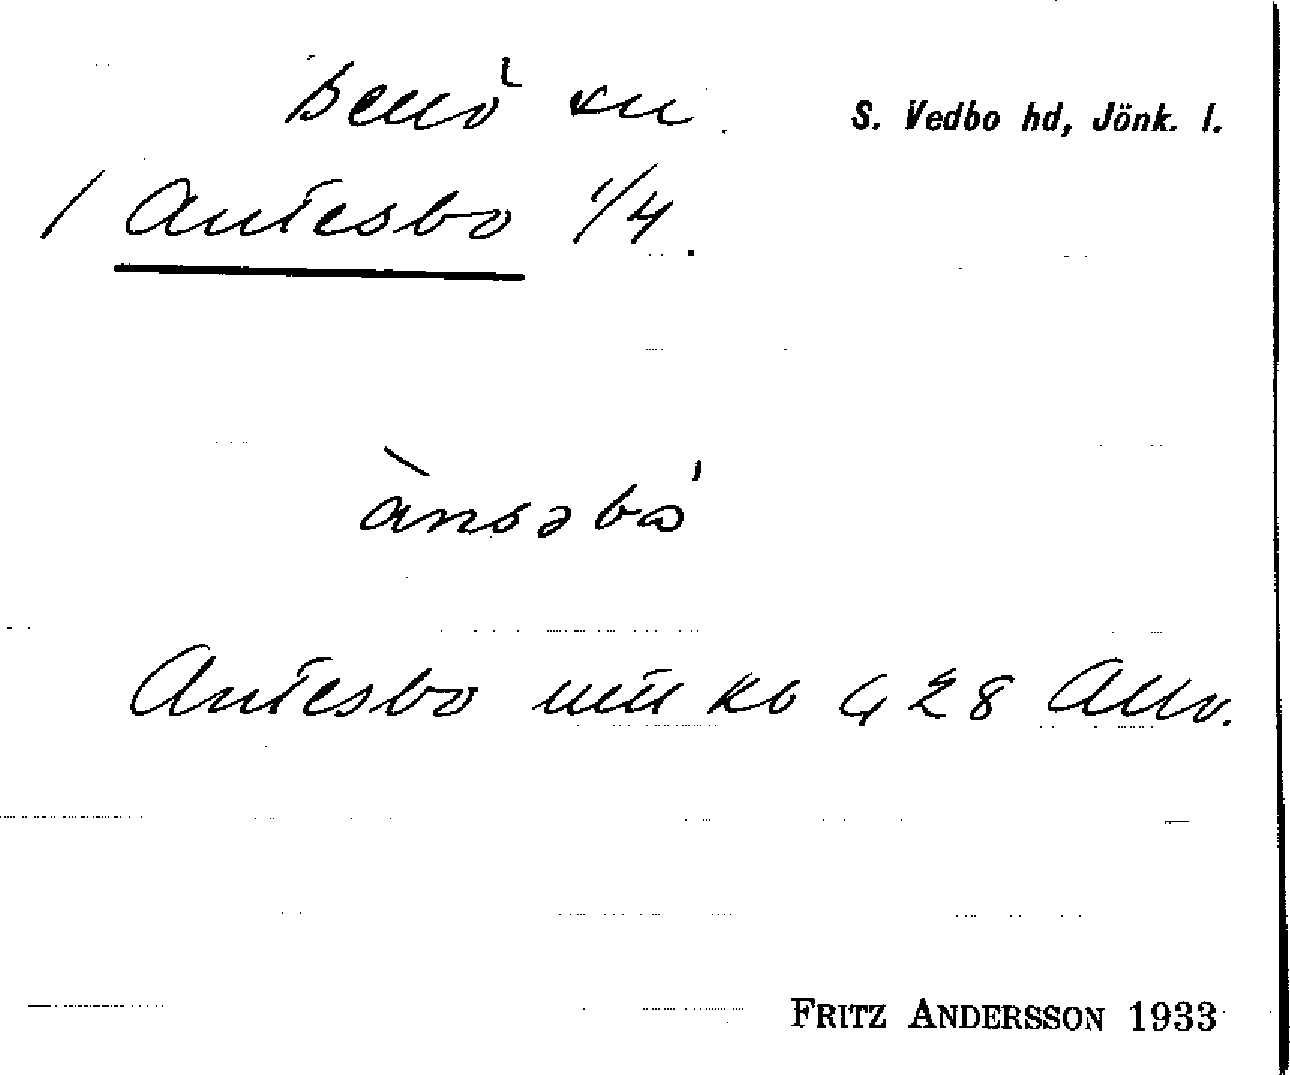 Bellö sn S. Vedbo hd, Jönk. l.
/ Antesbo 1/4.
ànsəbó
Antesbo mtl kb G 28 Allv.
FRITZ ANDERSSON 1933